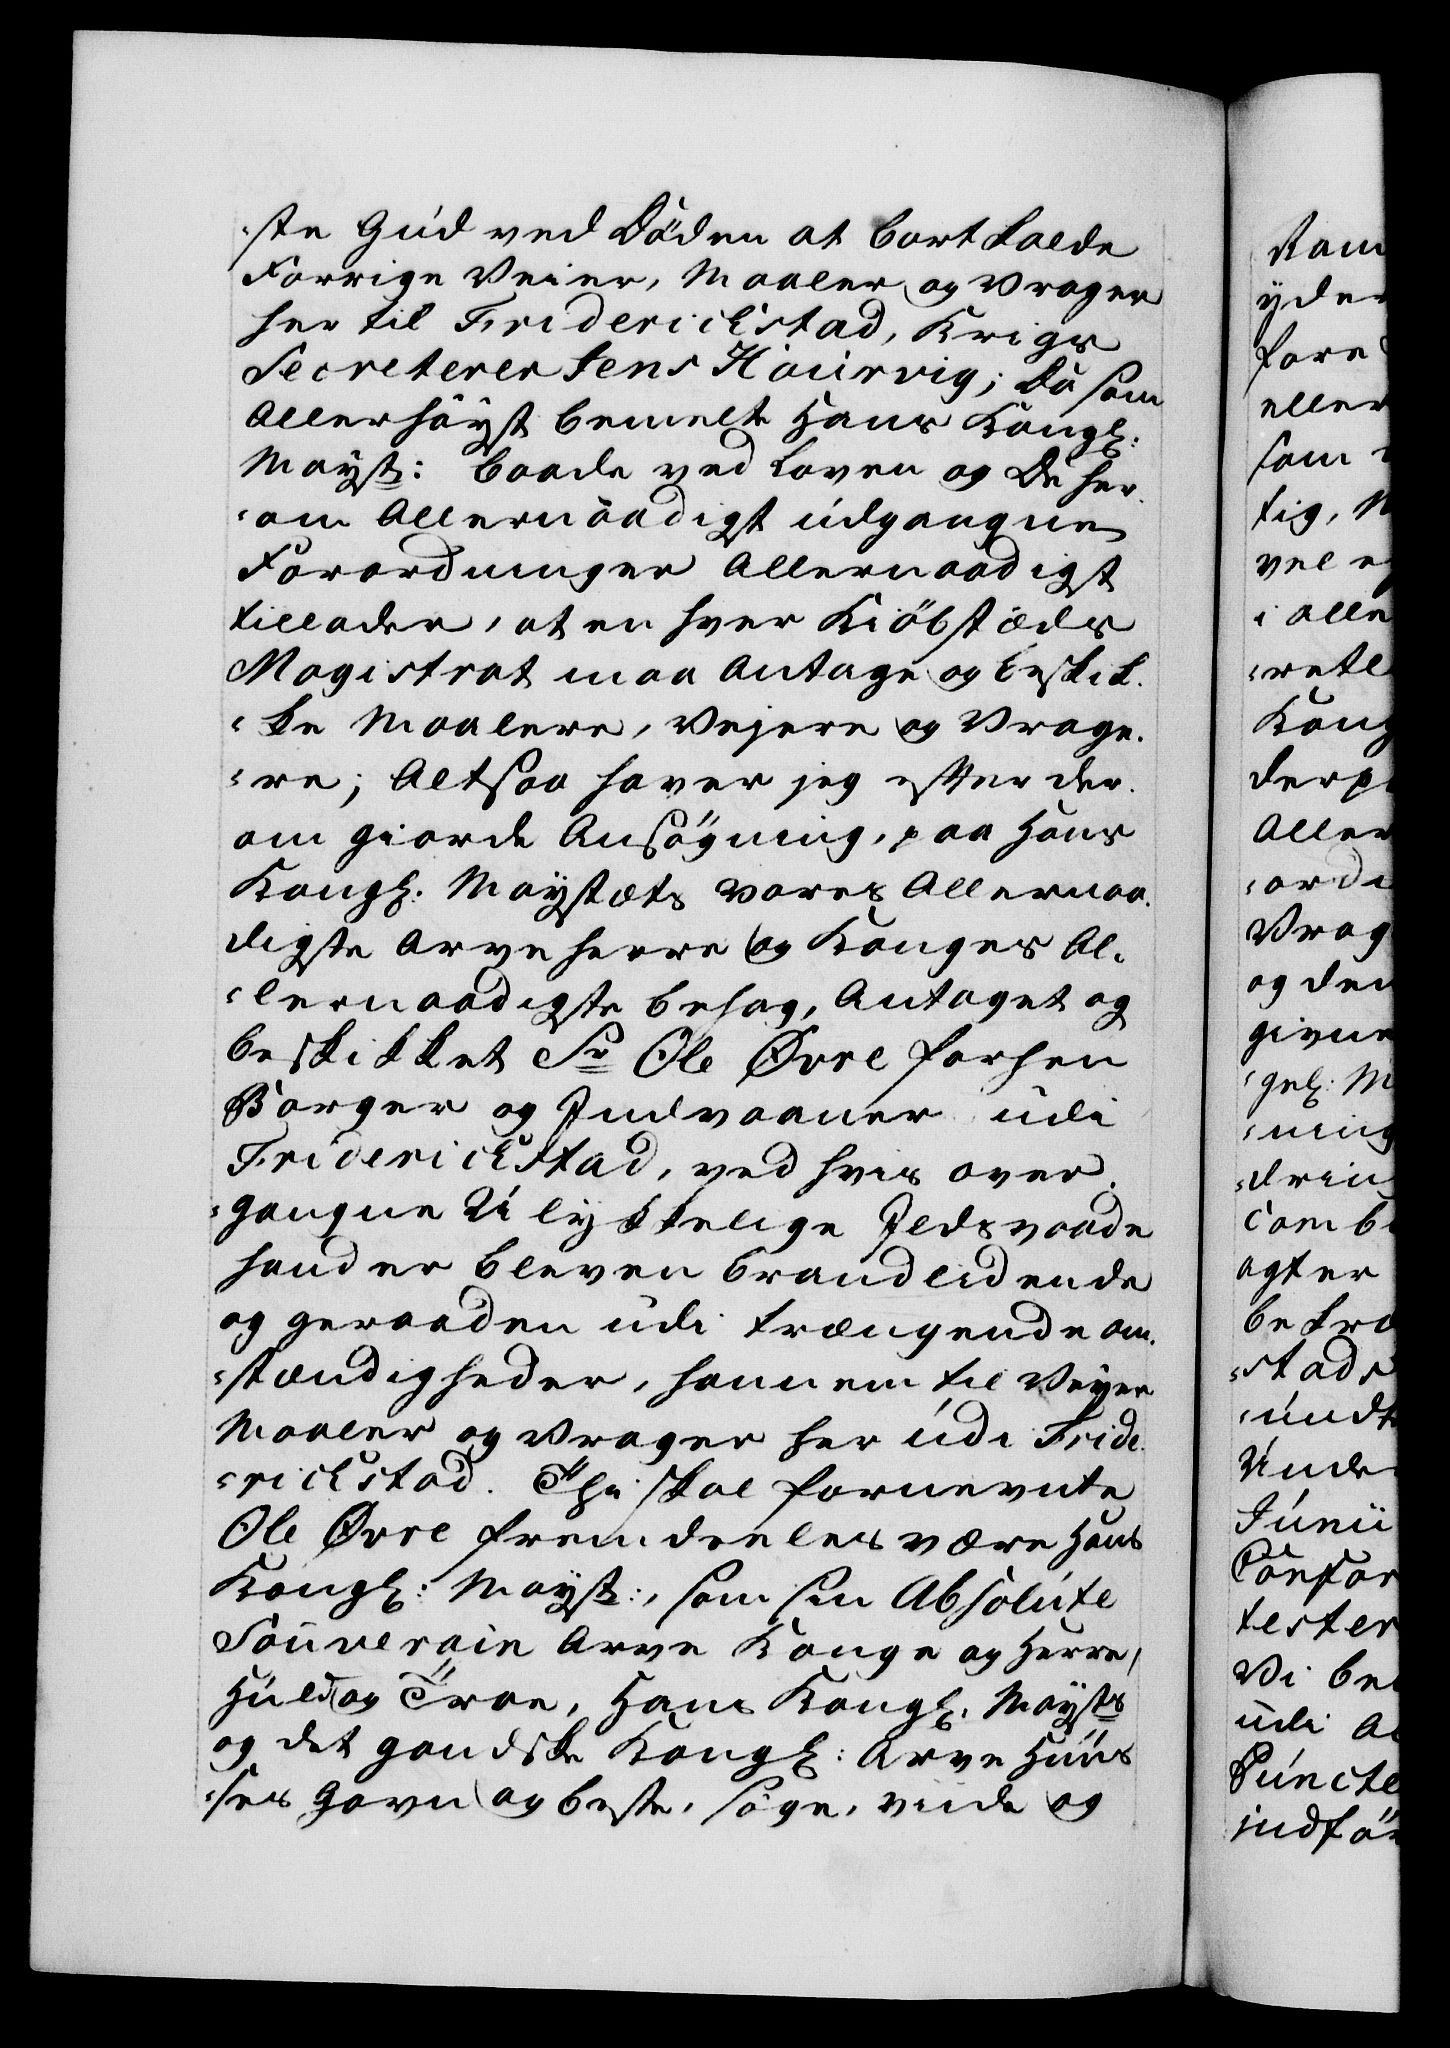 -ste Gud ved Döden at bortkalde
Forrige Veier, Maaler og Vrager
her til Friderichstad, Krigs
Secreterer Jens Hourvig; Da som
Allerhöyst bemelte Hans Kongl:
Mayst: baade ved Loven og De her-
-om Allernaadigst udgangne
Forordninger Allernaadigst
tillader, at en hver Kiöbstæds
Magistrat maa Antage og beskik-
-ke Maalere, Vejere og Vrage-
-re; Altsaa haver jeg efter der-
om giorde Ansögning, paa Hans
Kongl. Maystæts vores Allernaa-
digste Arve Herre og Konges Al-
-lernaadigste behag, Antaget og
beskikket Sr Ole Øvre forhen
Borger og Indvaaner udi
Friderichstad, ved hvis over-
-gangne Ulykkelige Ildsvaade
hand er bleven brandlidende
og geraaden udi trængende om-
-stændigheder, hannem til Veyer
Maaler og Vrager her udi Fride-
-richstad. Thi skal fornevnte
Ole Øvre fremdeeles være Hans
Kongl: Mayst:, som sin Absolute
Souverain Arve Konge og Herre,
Huld og Troe, Hans Kongl. Mayts
og det gandske Kongl: Arve Huus
-ses Gavn og beste, söge, viide og
Ram
yder
fore
eller
som
tig, M
vel e
i alle
-retl
Kong
derp
Aller
-ordi
Vrag
og den
givne
-gel: M
-ning
-drin
Comb
agter
bekræ
-stads
-undt
Unde
Junii
Confor
tester
Vi be
udi A
Puncte
indför